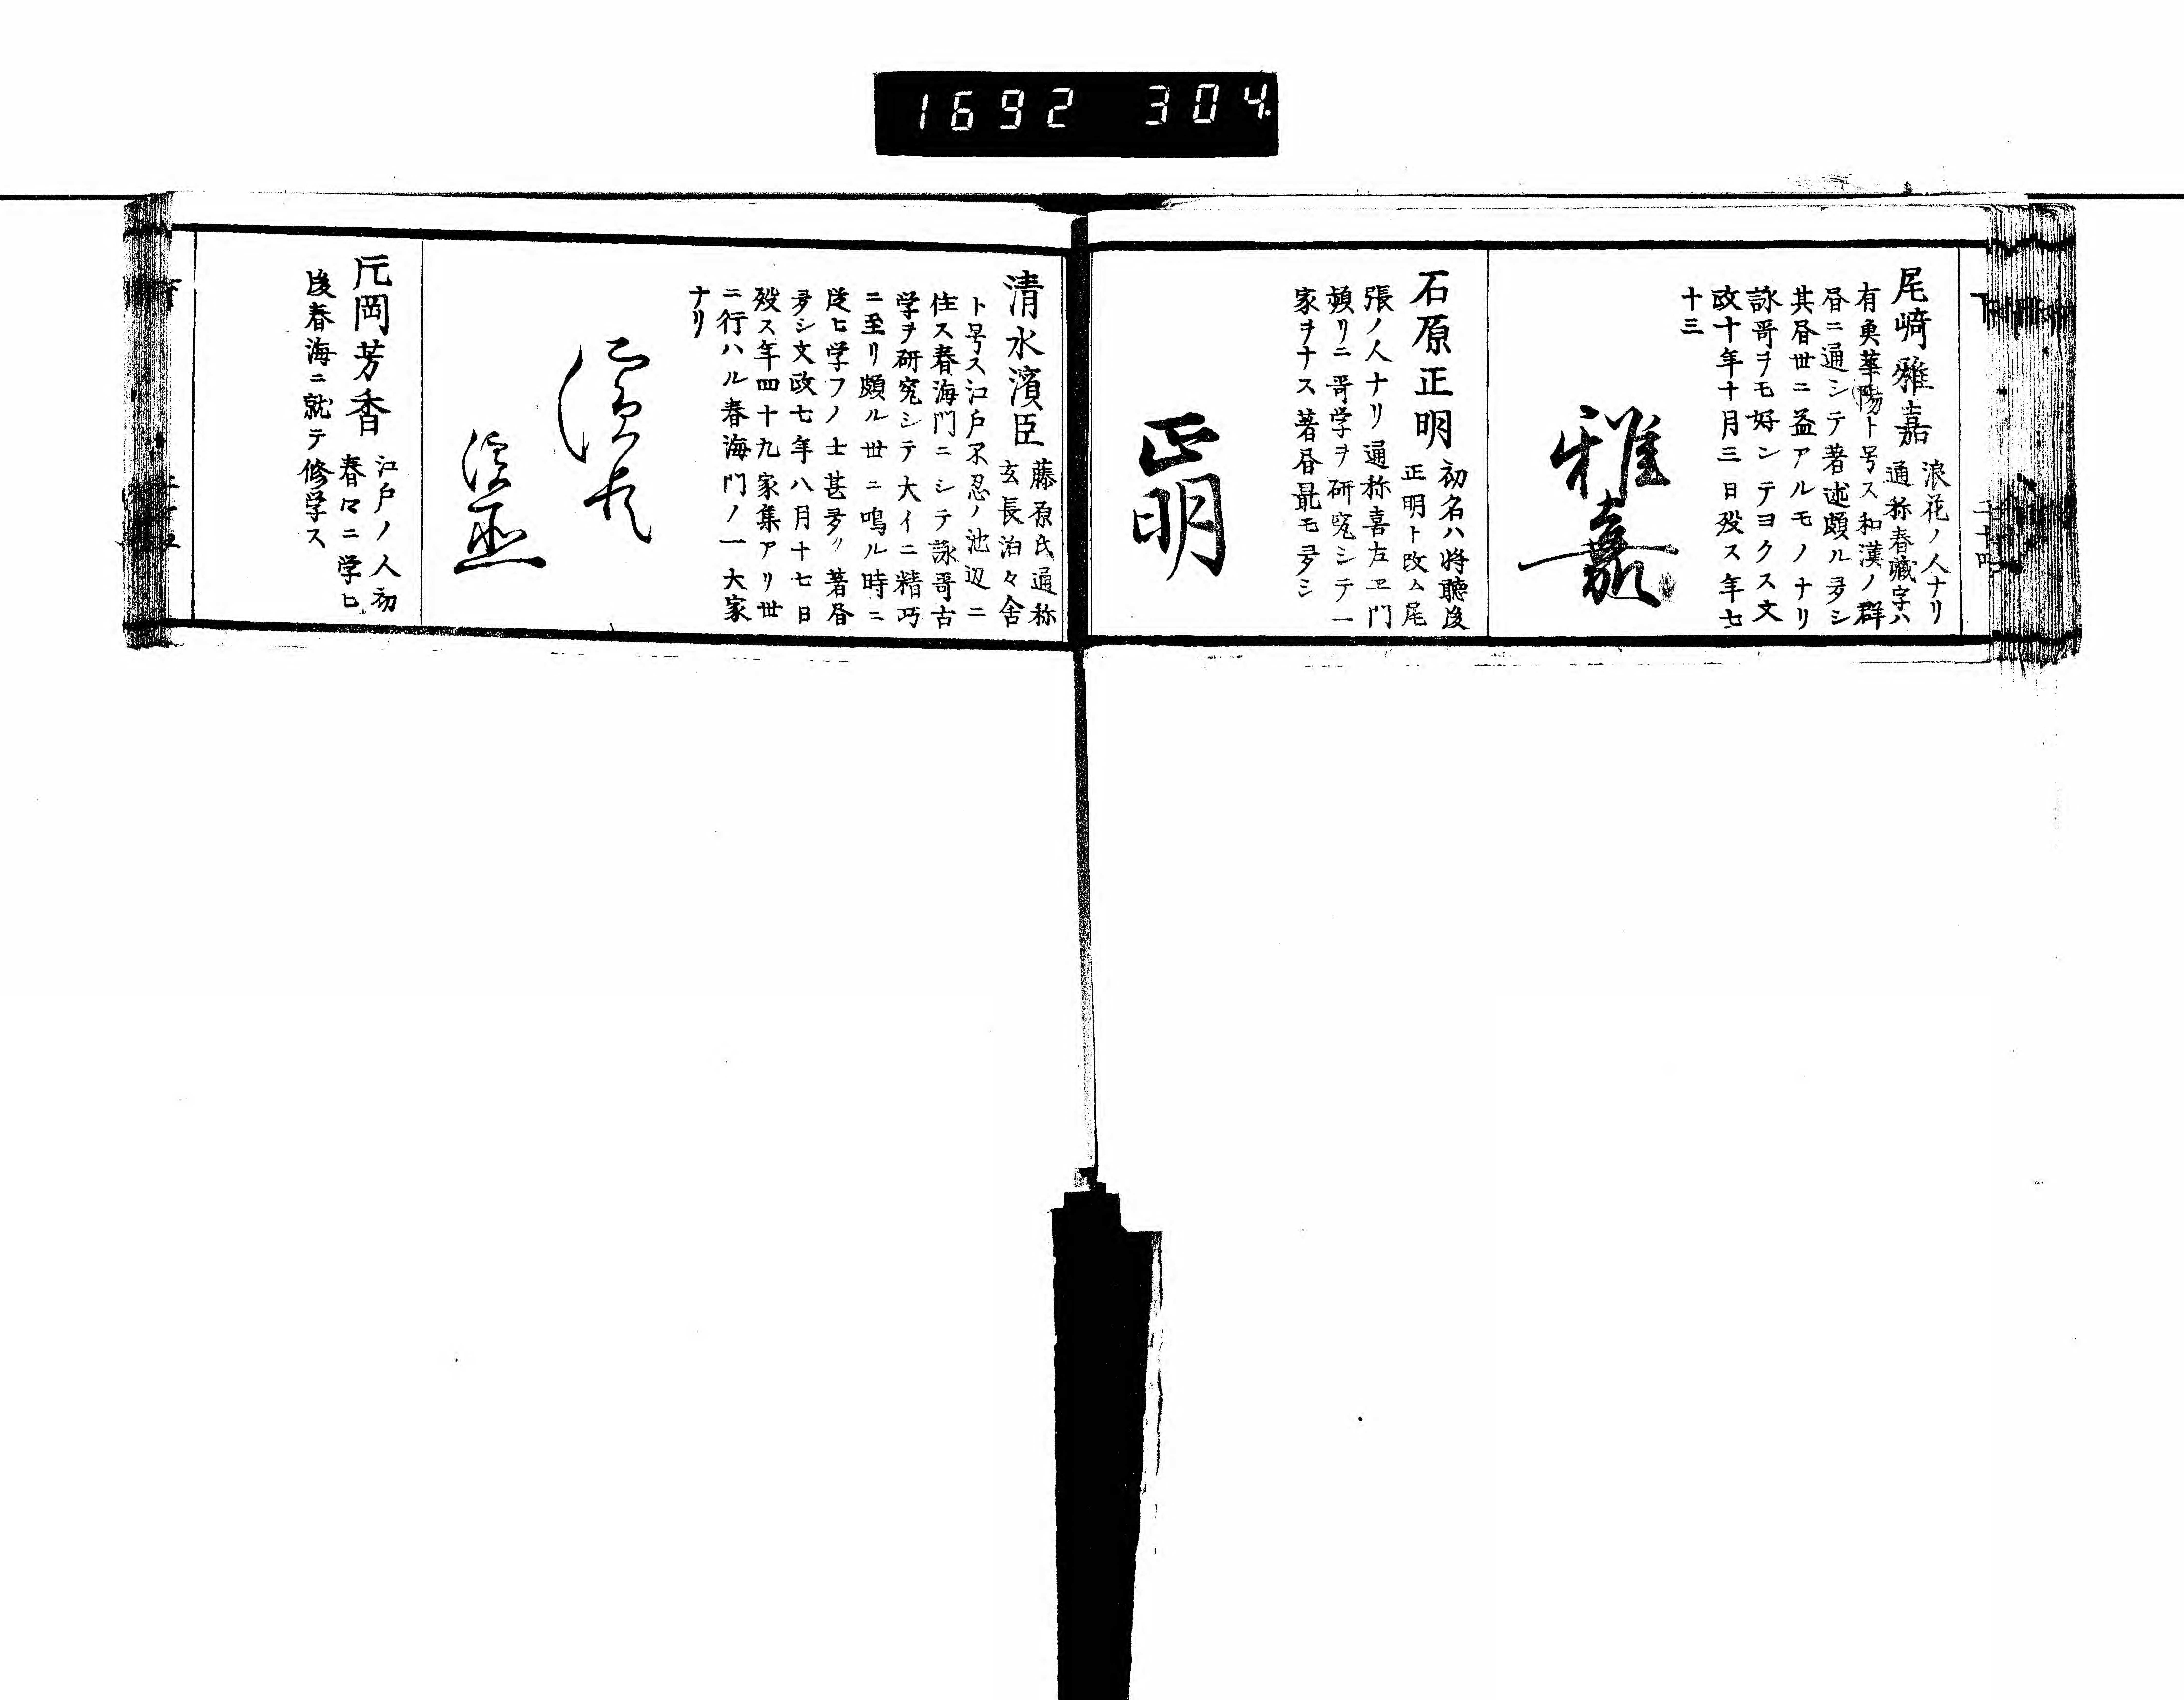 1692 304
尾﨑雅嘉 浪花ノ人ナリ
通称春藏字ハ
有奥華陽ト号ス和漢ノ群
昼ニ通シテ著述頗ル多シ
其昼世ニ益アルモノナリ
詠哥ヲモ好ンテヨクス文
政十年十月三日歿ス年七
十三
雅嘉
石原正明 初名ハ将聴後
正明ト改ム尾
張ノ人ナリ通称喜左ヱ門
頻リニ哥学ヲ研究シテ一
家ヲナス著昼最モ多シ
正明
清水濱臣 藤原氏通称
玄長泊々舎
ト号ス江戸不忍ノ池辺ニ
住ス春海門ニシテ詠哥古
学ヲ研究シテ大イニ精巧
ニ至リ頗ル世ニ鳴ル時ニ
従ヒ学フノ士甚多ク著昼
多シ文政七年八月十七日
歿ス年四十九家集アリ世
ニ行ハル春海門ノ一大家
ナリ
濱臣
濱臣
元岡芳香 江戸ノ人初
春々ニ学ヒ
後春海ニ就テ修学ス